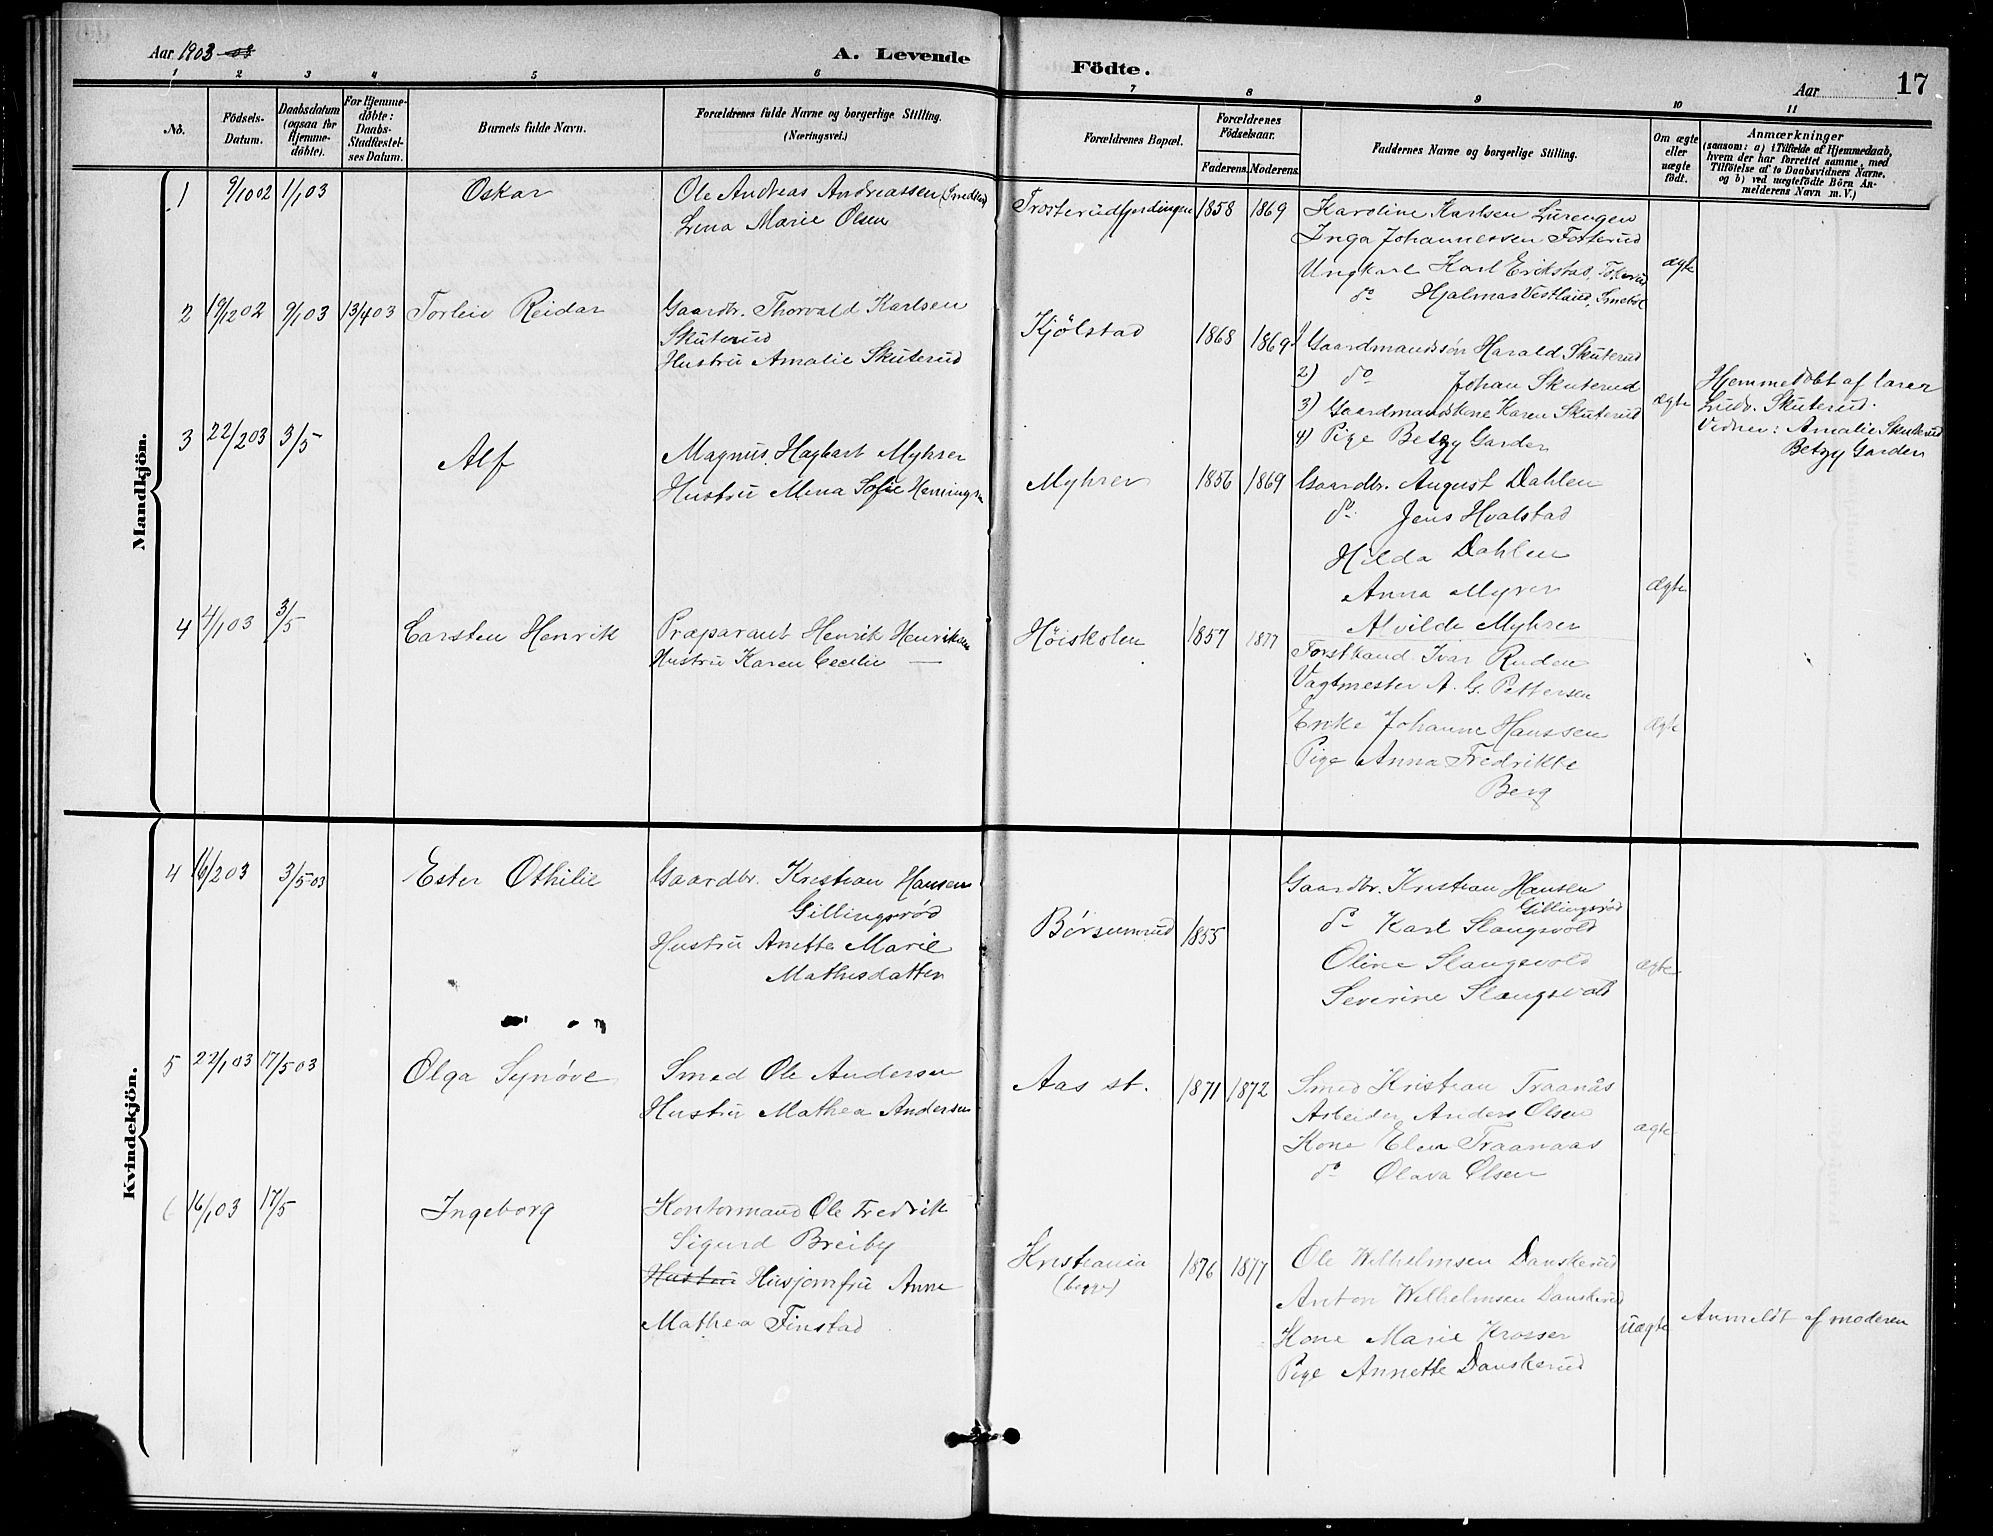 Aar 1903
A. Levende
Födte.
Aar
17
1 2 3 4 5 6 7 8 9 10 11
No.
Födsels-
Datum.
Daabsdatum
(ogsaa for
Hjemme-
döbte).
For Hjemme-
döbte:
Daabs-
Stadfæstel-
ses Datum.
Barnets fulde Navn.
Forældrenes fulde Navne og borgerlige Stilling.
(Næringsvei.)
Forældrenes Bopæl.
Forældrenes
Födselsaar.
Faderens. Moderens.
Faddernes Navne og borgerlige Stilling.
Om ægte
eller
uægte
födt.
Anmærkninger
(saasom: a) i Tilfælde af Hjemmedaab,
hvem der har forrettet samme, med
Tilföielse af to Daabsvidners Navne.
og b) ved uægtefödte Börn An-
melderens Navn m. V.)
Mandkjön.
1 9/10 02 1/1 03 Oskar
Ole Andreas Andreassen
Lena Marie Olsen
Trosterudfjerdingen 1858 1869
Karoline Karlsen Lurengen
Inga Johannessen Fosterud
Ungkarl Karl Erikstad,
do Hjalmar Vestlund,
ægte
2 19/12 02 9/1 03 13/4 03 Torleiv Reidar
Gaardbr. Thorvald Karlsen
Skuterud
Hustru Amalie Skuterud
Kjölstad 1868 1869
1) Gaardmandssön Harald Skuterud
2) do Johan Skuterud
3) Gaardmandskone Karen Skuterud
4) Pige Betzy Garder
ægte
Hjemmedöbt af lærer
Ludv. Skuterud.
Vidner: Amalie Skuterud
Betzy Garder
3 22/2 03 3/5 Alf
Magnus Hagbart Myhrer
Hustru Mina Sofie Henningsen
Myhrer 1856 1869
Gaardbr. August Dahlen
do Jens Hvalstad
Hilda Dahlen
Anna Myrer
Alvilde Myhrer
Ægte
4 4/1 03 3/5 Carsten Henrik
Præparant Henrik Henriksen
Hustru Karen Cecilie —
Höiskolen 1857 1877
Forstkand. Ivar Ruden
Vagtmester A. G. Pettersen
Enke Johanne Hanssen
Pige Anna Fredrikke
Berg
Ægte
Kvindekjön.
4 16/2 03 3/5 03 Ester Othilie
Gaardbr. Kristian Hansen
Gillingsröd
Hustru Anette Marie
Mathisdatter
Börsumrud 1855
Gaardbr. Kristian Hansen
Gillingsröd
do Karl Slangsvold
Oline Slangsvold
Severine Slangsvold
ægte
5 22/1 03 17/5 03 Olga Synöve
Smed Ole Andersen
Hustru Mathea Andersen
Aas st. 1871 1872
Smed Kristian Traanås
Arbeider Anders Olsen
Kone Elen Traanaas
do Olava Olsen
ægte
6 16/1 03 17/5 Ingeborg
Kontormand Ole Fredrik
Sigurd Breiby
Hustru Husjomfru Anne
Mathea Finstad
Kristiania
(begge)
1876 1877
Ole Wilhelmsen Danskerud
Anton Wilhelmsen Danskerud
Kone Marie Krosser
Pige Annette Danskerud
uægte
Anmeldt af moderen